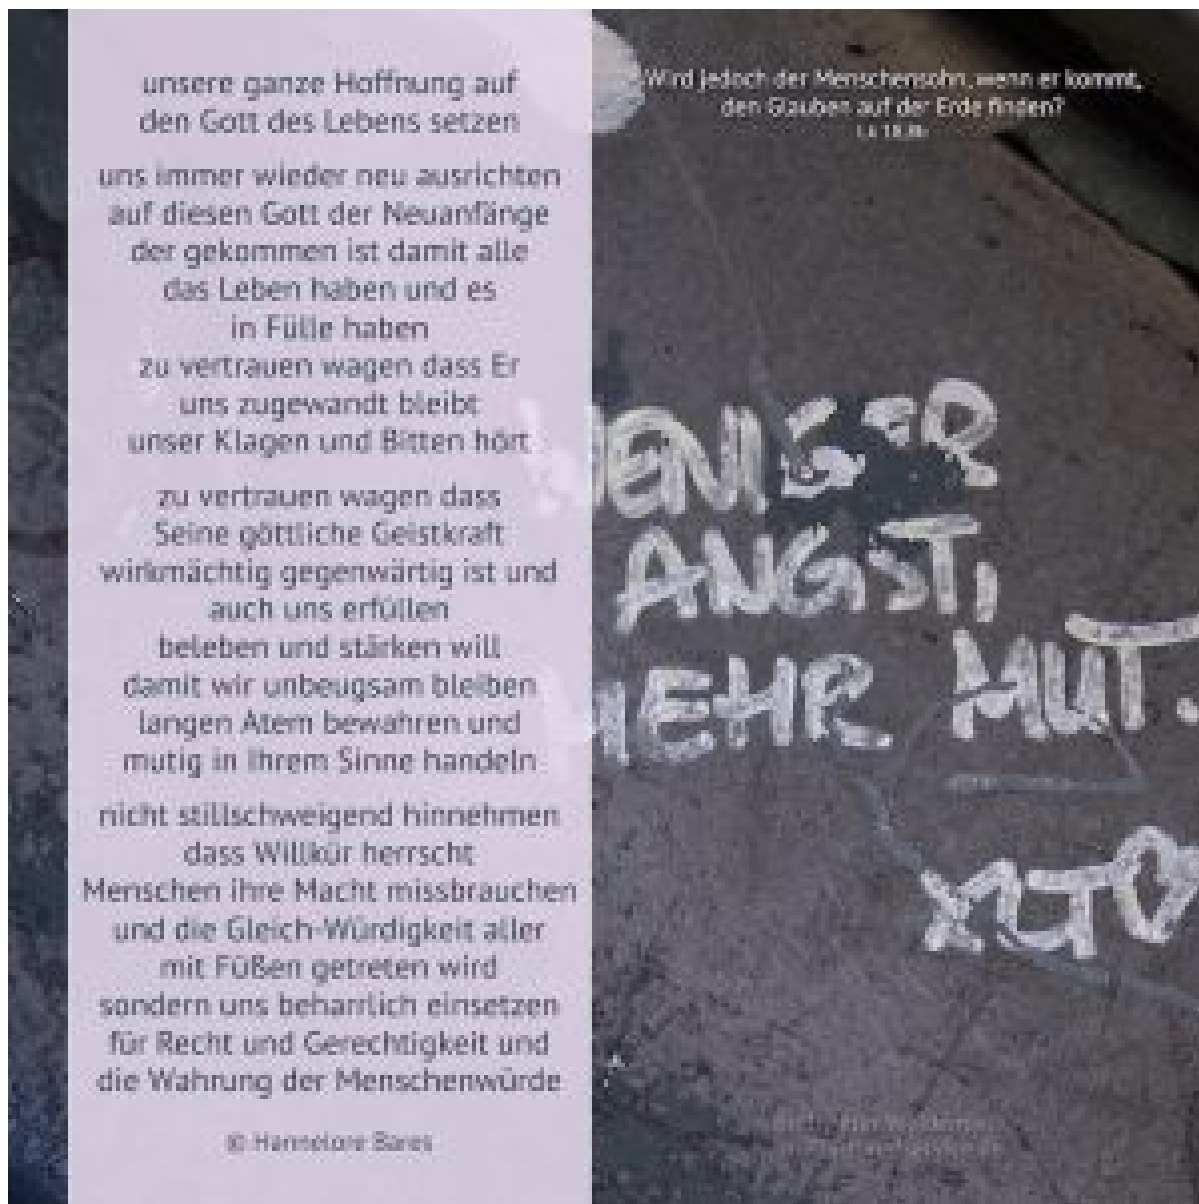 unsere ganze Hoffnung auf
den Gott des Lebens setzen
uns immer wieder neu ausrichten
auf diesen Gott der Neuanfänge
der gekommen ist damit alle
das Leben haben und es
in Fülle haben
zu vertrauen wagen dass Er
uns zugewandt bleibt
unser Klagen und Bitten hört
zu vertrauen wagen dass
Seine göttliche Geistkraft
wirkmächtig gegenwärtig ist und
auch uns erfüllen
beleben und stärken will
damit wir unbeugsam bleiben
langen Atem bewahren und
mutig in Ihrem Sinne handeln
nicht stillschweigend hinnehmen
dass Willkür herrscht
Menschen ihre Macht missbrauchen
und die Gleich-Würdigkeit aller
mit Füßen getreten wird
sondern uns beharrlich einsetzen
für Recht und Gerechtigkeit und
die Wahrung der Menschenwürde
© Hannelore Bares
Wird jedoch der Menschensohn, wenn er kommt,
den Glauben auf der Erde finden?
Lk 18,8b
WENIGER
ANGST,
MEHR MUT.